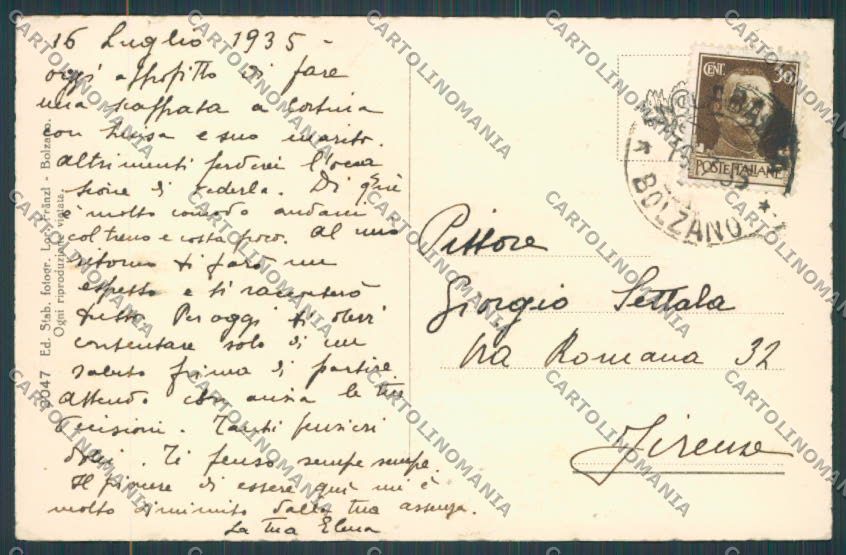 16 Luglio 1935 -
oggi approfitto di fare
una scappata a Cortina
con Luisa e suo marito.
Altrimenti perderei l'occa
sione di vederla. Di qui
è molto comodo andarci
col treno e costa poco. Al mio
ritorno ti farò un
espresso e ti racconterò
tutto. Per oggi ti devi
contentare solo di un
saluto prima di partire
attendo con ansia le tue
decisioni. Tanti pensieri
dolci. Ti penso sempre sempre.
Il piacere di essere qui mi è
molto diminuito dalla tua assenza.
La tua Elena
3047 Ed. Stab. fotogr. Leo Fränzl - Bolzano.
Ogni riproduzione vietata.
CENT. 30
POSTE ITALIANE
BOLZANO
Pittore
Giorgio Settala
Via Romana 32
Firenze
CARTOLINOMANIA